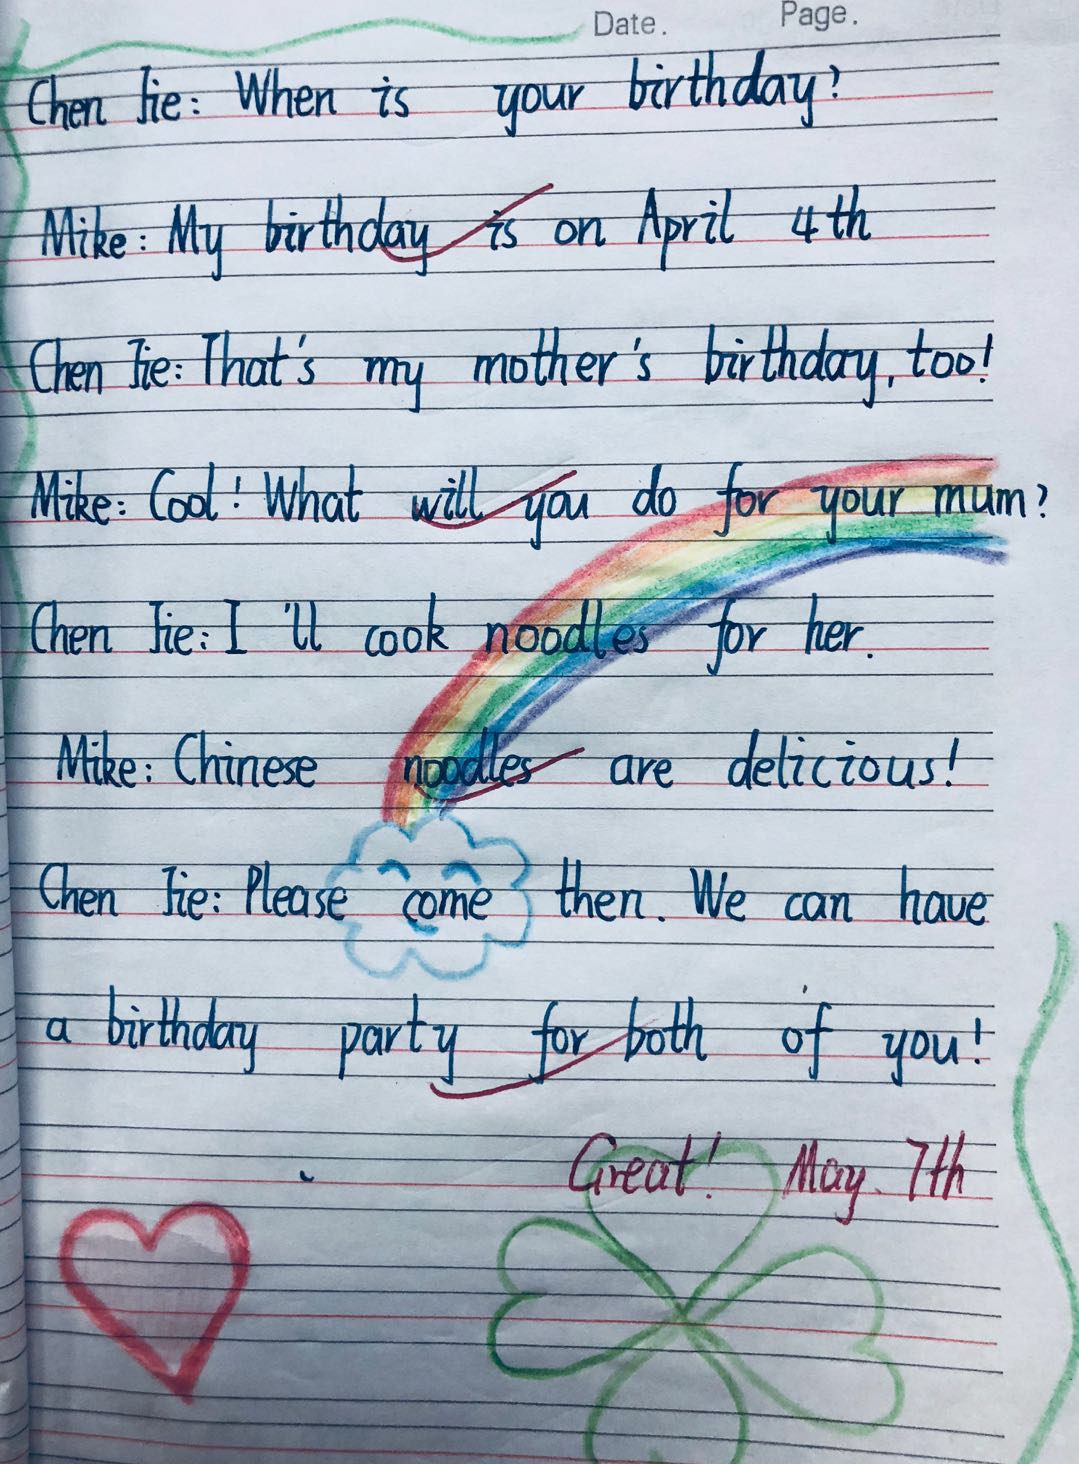 Date. Page.
Chen Jie: When is your birthday?
Mike: My birthday is on April 4th
Chen Jie: That's my mother's birthday, too!
Mike: Cool! What will you do for your mum?
Chen Jie: I 'll cook noodles for her.
Mike: Chinese noodles are delicious!
Chen Jie: Please come then. We can have
a birthday party for both of you!
Great! May. 7th